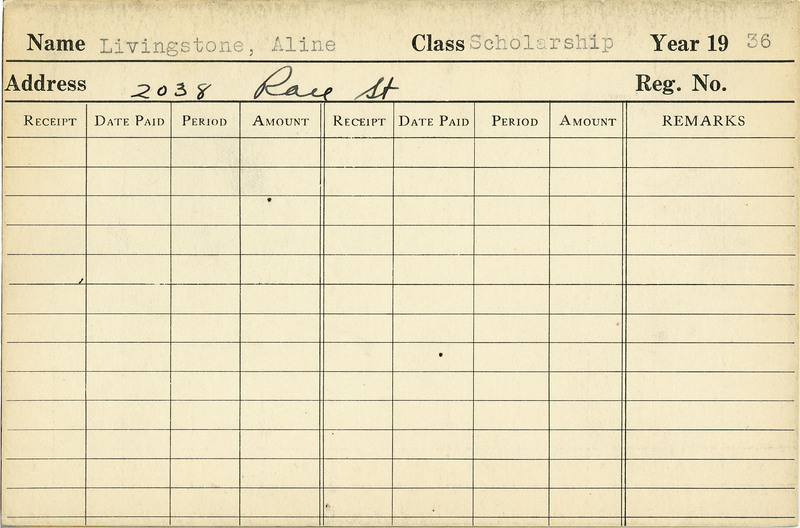 Name Livingstone, Aline Class Scholarship Year 19 36
Address 2038 Race St Reg. No.
Receipt Date Paid Period Amount Receipt Date Paid Period Amount REMARKS